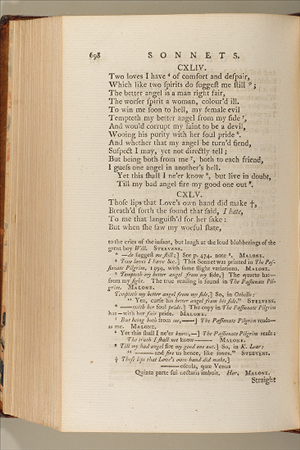 698 SONNETS.
CXLIV.
Two loves I have of comfort and deſpair,
Which like two ſpirits do ſuggeſt me ſtill ;
The better angel is a man right fair,
The worſer ſpirit a woman, colour'd ill.
To win me ſoon to hell, my female evil
Tempteth my better angel from my ſide ,
And would corrupt my ſaint to be a devil,
Wooing his purity with her foul pride .
And whether that my angel be turn'd fiend,
Suſpect I may, yet not directly tell ;
But being both from me , both to each friend,
I gueſs one angel in another's hell.
Yet this ſhall I ne'er know , but live in doubt,
Till my bad angel fire my good one out .
CXLV.
Thoſe lips that Love's own hand did make †,
Breath'd forth the ſound that ſaid, I hate,
To me that languiſh'd for her ſake :
But when ſhe ſaw my woeful ſtate,
to the cries of the infant, but laugh at the loud blubberings of the
great boy Will. STEEVENS.
—do ſuggeſt me ſtill ;] See p. 474. note . MALONE.
Two loves I have &c.] This Sonnet was printed in The Paſ-
ſionate Pilgrim, 1599, with ſome ſlight variations. MALONE.
Tempteth my better angel from my ſide,] The quarto has—
from my ſight. The true reading is found in The Paſſionate Pil-
grim. MALONE.
Tempteth my better angel from my ſide,] So, in Othello:
" Yea, curſe his better angel from his ſide." STEEVENS.
—with her foul pride.] The copy in The Paſſionate Pilgrim
has—with her fair pride. MALONE.
But being both from me,—] The Paſſionate Pilgrim reads—
to me. MALONE.
Yet this ſhall I ne'er know,—] The Paſſionate Pilgrim reads:
The truth I ſhall not know—— MALONE.
Till my bad angel fire my good one out.] So, in K. Lear:
" —— and fire us hence, like foxes." STEEVENS.
† Thoſe lips that Love's own hand did make,]
——oſcula, quæ Venus
Quinta parte ſui nectaris imbuit. Hor. MALONE.
Straight